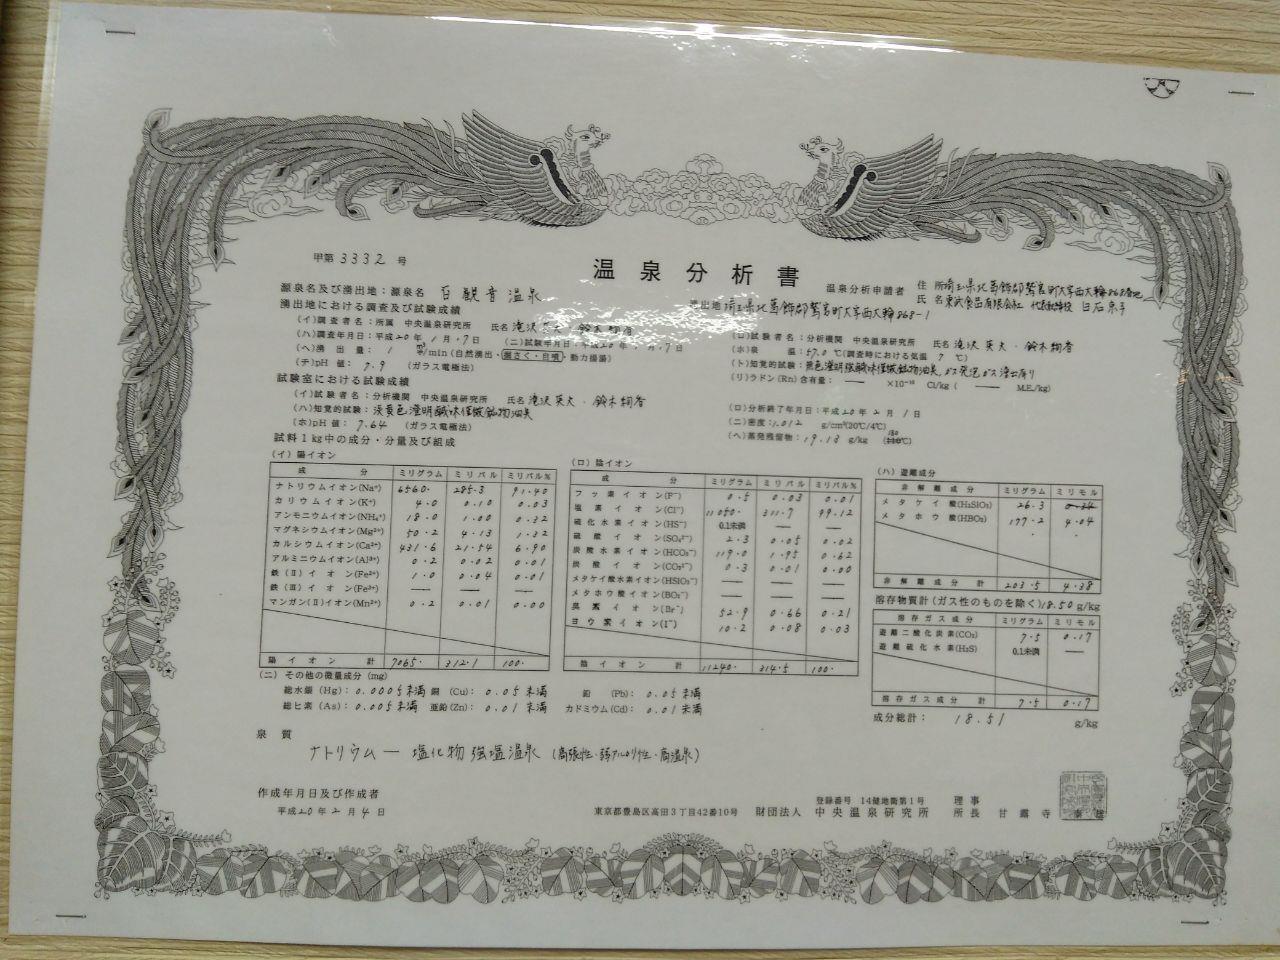 甲第3332号
温泉分析書
源泉名及び湧出地:源泉名 百観音温泉
湧出地 埼玉県北葛飾郡鷲宮町大字西大輪868-1
温泉分析申請者 住所 埼玉県北葛飾郡鷲宮町大字西大輪868番地
氏名 東武食品有限会社 代表取締役 白石
湧出地における調査及び試験成績
(イ)調査者名:所属 中央温泉研究所 氏名 滝沢英夫・鈴木
(ロ)試験者名:分析機関 中央温泉研究所 氏名 滝沢英夫・鈴木
(ハ)調査年月日:平成20年1月・7日 (ニ)試験年月日:平成20年 ・7日
(ホ)泉温:57.0℃(調査時における気温 7 ℃)
(ヘ)湧出量:1 /min(自然湧出・掘さく・自噴・動力揚湯)
(ト)知覚的試験:
(チ)pH値:7.9 (ガラス電極法)
(リ)ラドン(Rn)含有量:― ×10⁻¹⁰ Ci/kg ( ― M.E./kg)
試験室における試験成績
(イ)試験者名:分析機関 中央温泉研究所 氏名 滝沢英夫・鈴木
(ロ)分析終了年月日:平成20年2月1日
(ハ)知覚的試験:淡黄色澄明鹹味僅微鉱物油臭
(ニ)密度:1.012 g/cm³(20℃/4℃)
(ホ)pH値:7.64 (ガラス電極法)
(ヘ)蒸発残留物:19.13 g/kg (180℃)
試料1kg中の成分・分量及び組成
(イ)陽イオン
成分 ミリグラム ミリバル ミリバル%
ナトリウムイオン(Na⁺) 6560. 285.3 91.40
カリウムイオン(K⁺) 4.0 0.10 0.03
アンモニウムイオン(NH₄⁺) 18.0 1.00 0.32
マグネシウムイオン(Mg²⁺) 50.2 4.13 1.32
カルシウムイオン(Ca²⁺) 431.6 21.54 6.90
アルミニウムイオン(Al³⁺) 0.2 0.02 0.01
鉄(Ⅱ)イオン(Fe²⁺) 1.0 0.04 0.01
鉄(Ⅲ)イオン(Fe³⁺) ― ― ―
マンガン(Ⅱ)イオン(Mn²⁺) 0.2 0.01 0.00
陽イオン計 7065. 312.1 100.
(ロ)陰イオン
成分 ミリグラム ミリバル ミリバル%
フッ素イオン(F⁻) 0.5 0.03 0.01
塩素イオン(Cl⁻) 11050. 311.7 99.12
硫化水素イオン(HS⁻) 0.1未満 ― ―
硫酸イオン(SO₄²⁻) 2.3 0.05 0.02
炭酸水素イオン(HCO₃⁻) 119.0 1.95 0.62
炭酸イオン(CO₃²⁻) 0.3 0.01 0.00
メタケイ酸水素イオン(HSiO₃⁻) ― ― ―
メタホウ酸イオン(BO₂⁻) ― ― ―
臭素イオン(Br⁻) 52.9 0.66 0.21
ヨウ素イオン(I⁻) 10.2 0.08 0.03
陰イオン計 11240. 314.5 100.
(ハ)遊離成分
非解離成分 ミリグラム ミリモル
メタケイ酸(H₂SiO₃) 26.3 0.34
メタホウ酸(HBO₂) 177.2 4.04
非解離成分計 203.5 4.38
溶存物質計(ガス性のものを除く)18.50 g/kg
溶存ガス成分 ミリグラム ミリモル
遊離二酸化炭素(CO₂) 7.5 0.17
遊離硫化水素(H₂S) 0.1未満 ―
溶存ガス成分計 7.5 0.17
成分総計: 18.51 g/kg
(ニ)その他の微量成分(mg)
総水銀(Hg):0.0005未満 銅(Cu):0.05未満 鉛(Pb):0.05未満
総ヒ素(As):0.005未満 亜鉛(Zn):0.01未満 カドミウム(Cd):0.01未満
泉質
ナトリウム―塩化物強塩温泉(高張性・弱アルカリ性・高温泉)
作成年月日及び作成者
平成20年2月4日
登録番号 14健地衛第1号
東京都豊島区高田3丁目42番10号 財団法人 中央温泉研究所 理事所長 甘露寺